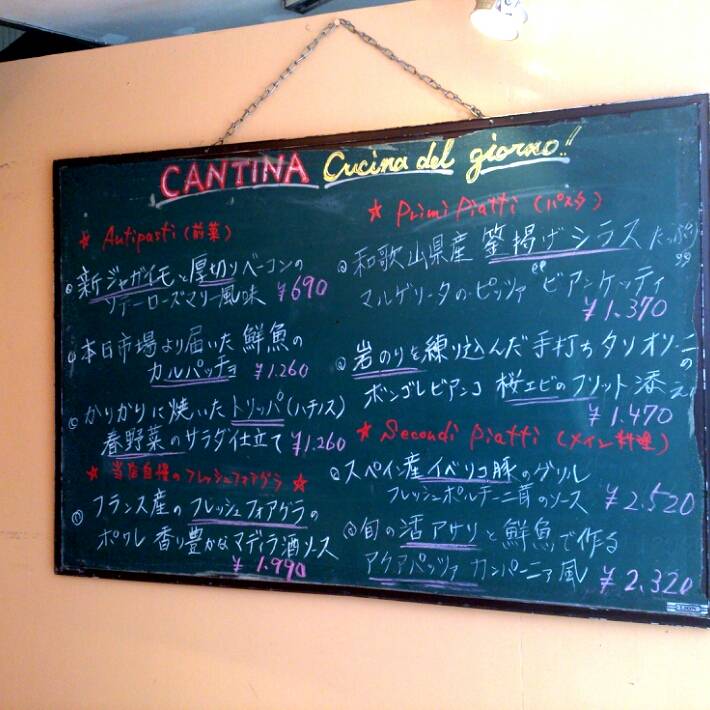 CANTINA Cucina del giorno!!
★ Antipasti (前菜)
新ジャガイモと厚切りベーコンの
ソテーローズマリー風味 ¥690
本日市場より届いた鮮魚の
カルパッチョ ¥1.260
かりかりに焼いたトリッパ(ハチノス)
春野菜のサラダ仕立て ¥1.260
★ 当店自慢のフレッシュフォアグラ ★
フランス産のフレッシュフォアグラの
ポワレ 香り豊かなマディラ酒ソース
¥1.990
★ Primi Piatti (パスタ)
和歌山県産 釜揚げシラスたっぷり
マルゲリータのピッツァ "ビアンケッティ"
¥1.370
岩のりを練り込んだ手打ちタリオリーニの
ボンゴレビアンコ 桜エビのフリット添え
¥1.470
★ Secondi Piatti (メイン料理)
スペイン産イベリコ豚のグリル
フレッシュポルチーニ茸のソース ¥2.520
旬の活アサリと鮮魚で作る
アクアパッツァ カンパーニア風 ¥2.320